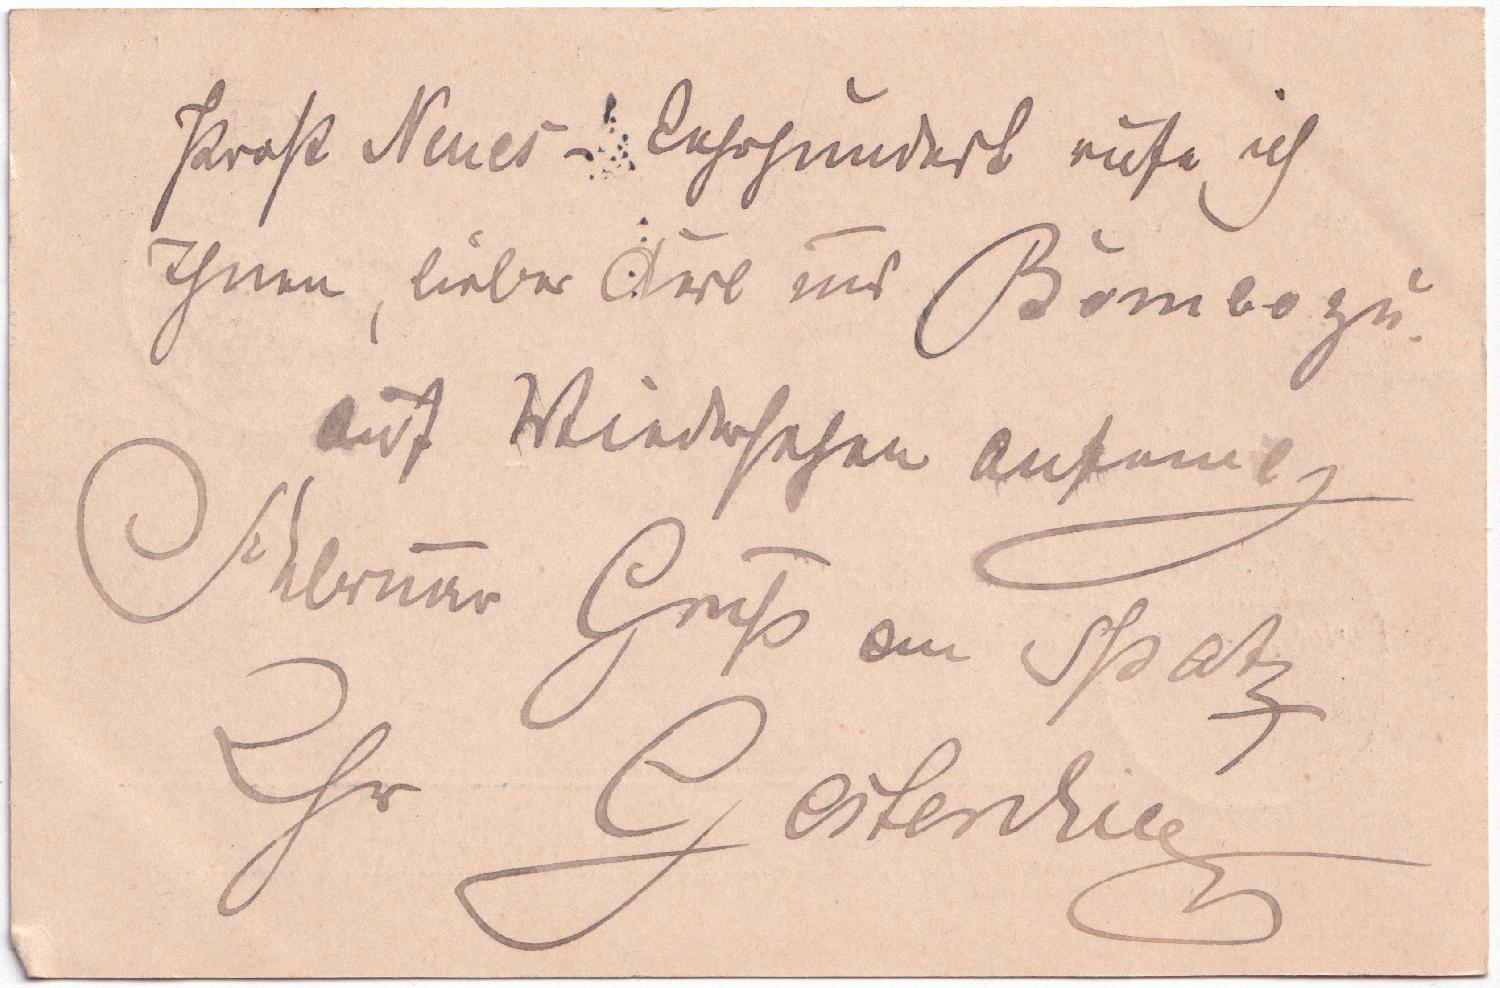 Prost Neues - Jahrhundert rufe ich
Ihnen, lieber Karl und Bombo zu.
Auf Wiedersehen Anfang
Februar Gruß an Spatz
Ihr